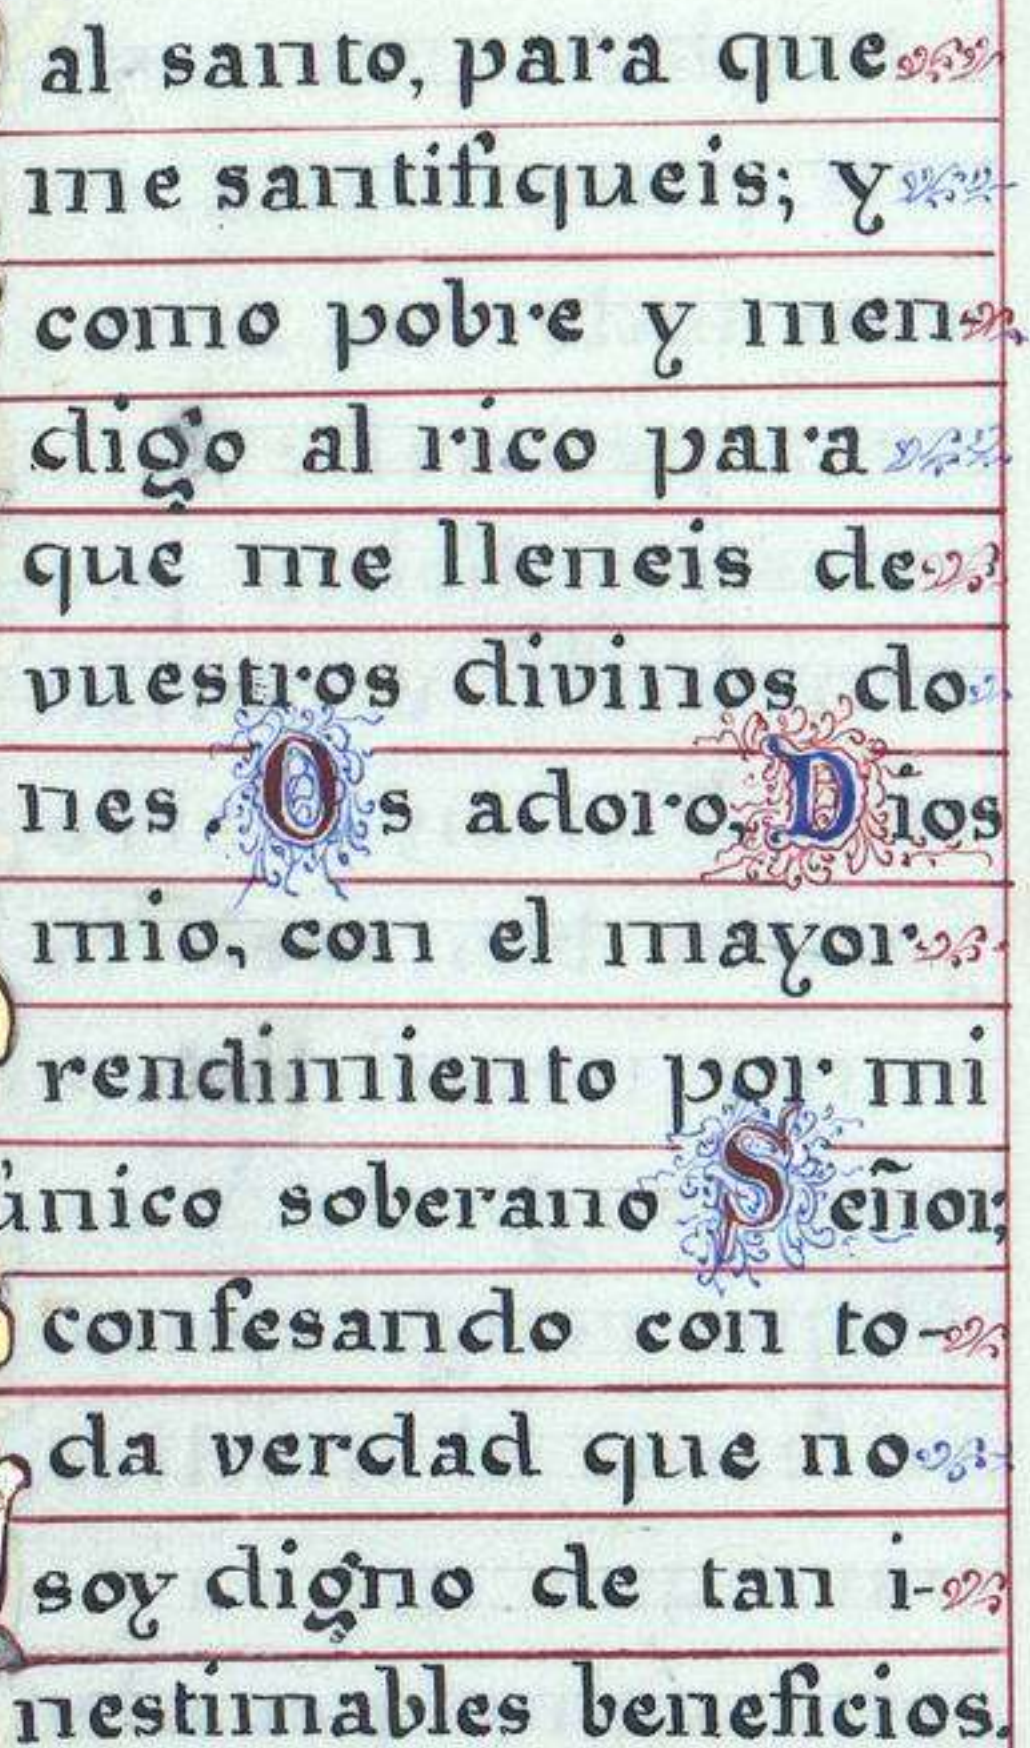 al santo, para que
me santifiqueis; y
como pobre y men-
digo al rico para
que me lleneis de
vuestros divinos do
nes. Os adoro, Dios
mio, con el mayor
rendimiento por mi
único soberano Señor,
confesando con to-
da verdad que no
soy digno de tan i-
nestimables beneficios.